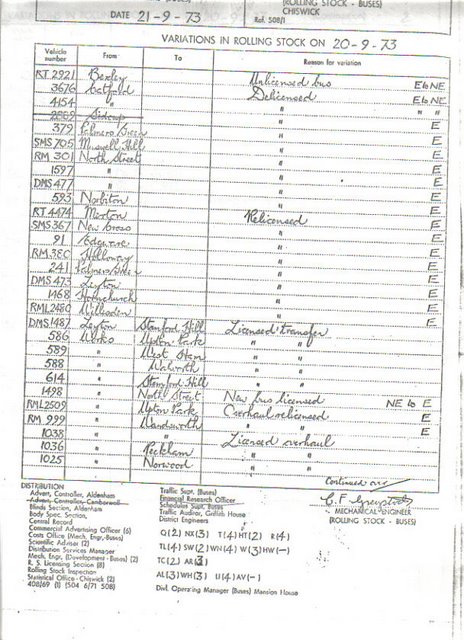 (ROLLING STOCK - BUSES)
CHISWICK
DATE 21-9-73 Ref. 508/1
VARIATIONS IN ROLLING STOCK ON 20-9-73
Vehicle number From To Reason for variation
RT 2921 Bexley Unlicensed bus E to NE
3676 Catford Delicensed E to NE
4154 " " " "
2002 Sidcup " E
379 Palmers Green " E
SMS 705 Muswell Hill " E
RM 301 North Street " E
1597 " " E
DMS 477 " " E
593 Norbiton " E
RT 4474 Merton Relicensed E
SMS 367 New Cross " E
91 Edgware " E
RM 380 Holloway " E
241 Palmers Green " E
DMS 473 Leyton " E
1468 Hornchurch " E
RML 2480 Willesden " E
DMS 1487 Leyton Stamford Hill Licensed transfer
586 Works Upton Park " "
589 " West Ham " "
588 " Walworth " "
614 " Stamford Hill " "
1498 " North Street New bus licensed NE to E
RML 2509 " Upton Park Overhaul relicensed E
RM 999 " Wandsworth " E
1038 " " Licensed overhaul
1036 " Peckham " "
1025 " Norwood " "
Continued over
DISTRIBUTION
Advert. Controller, Aldenham
Advert. Controller, Camberwell
Blinds Section, Aldenham
Body Spec. Section,
Central Record
Commercial Advertising Officer (6)
Costs Office (Mech. Engr.-Buses)
Scientific Adviser (2)
Distribution Services Manager
Mech. Engr. (Development-Buses) (2)
R. S. Licensing Section (8)
Rolling Stock Inspection
Statistical Office - Chiswick (2)
408/69 (1) (504 6/71 508)
Traffic Supt. (Buses)
Financial Research Officer
Schedules Supt. Buses
Traffic Auditor, Griffith House
District Engineers
Q(2) NX(3) T(4) HT(2) R(4)
TL(4) SW(2) WN(4) W(3) HW(-)
TC(2) AR(3)
AL(3) WH(3) U(4) AV(-)
Divl. Operating Manager (Buses) Mansion House
MECHANICAL ENGINEER
(ROLLING STOCK - BUSES)